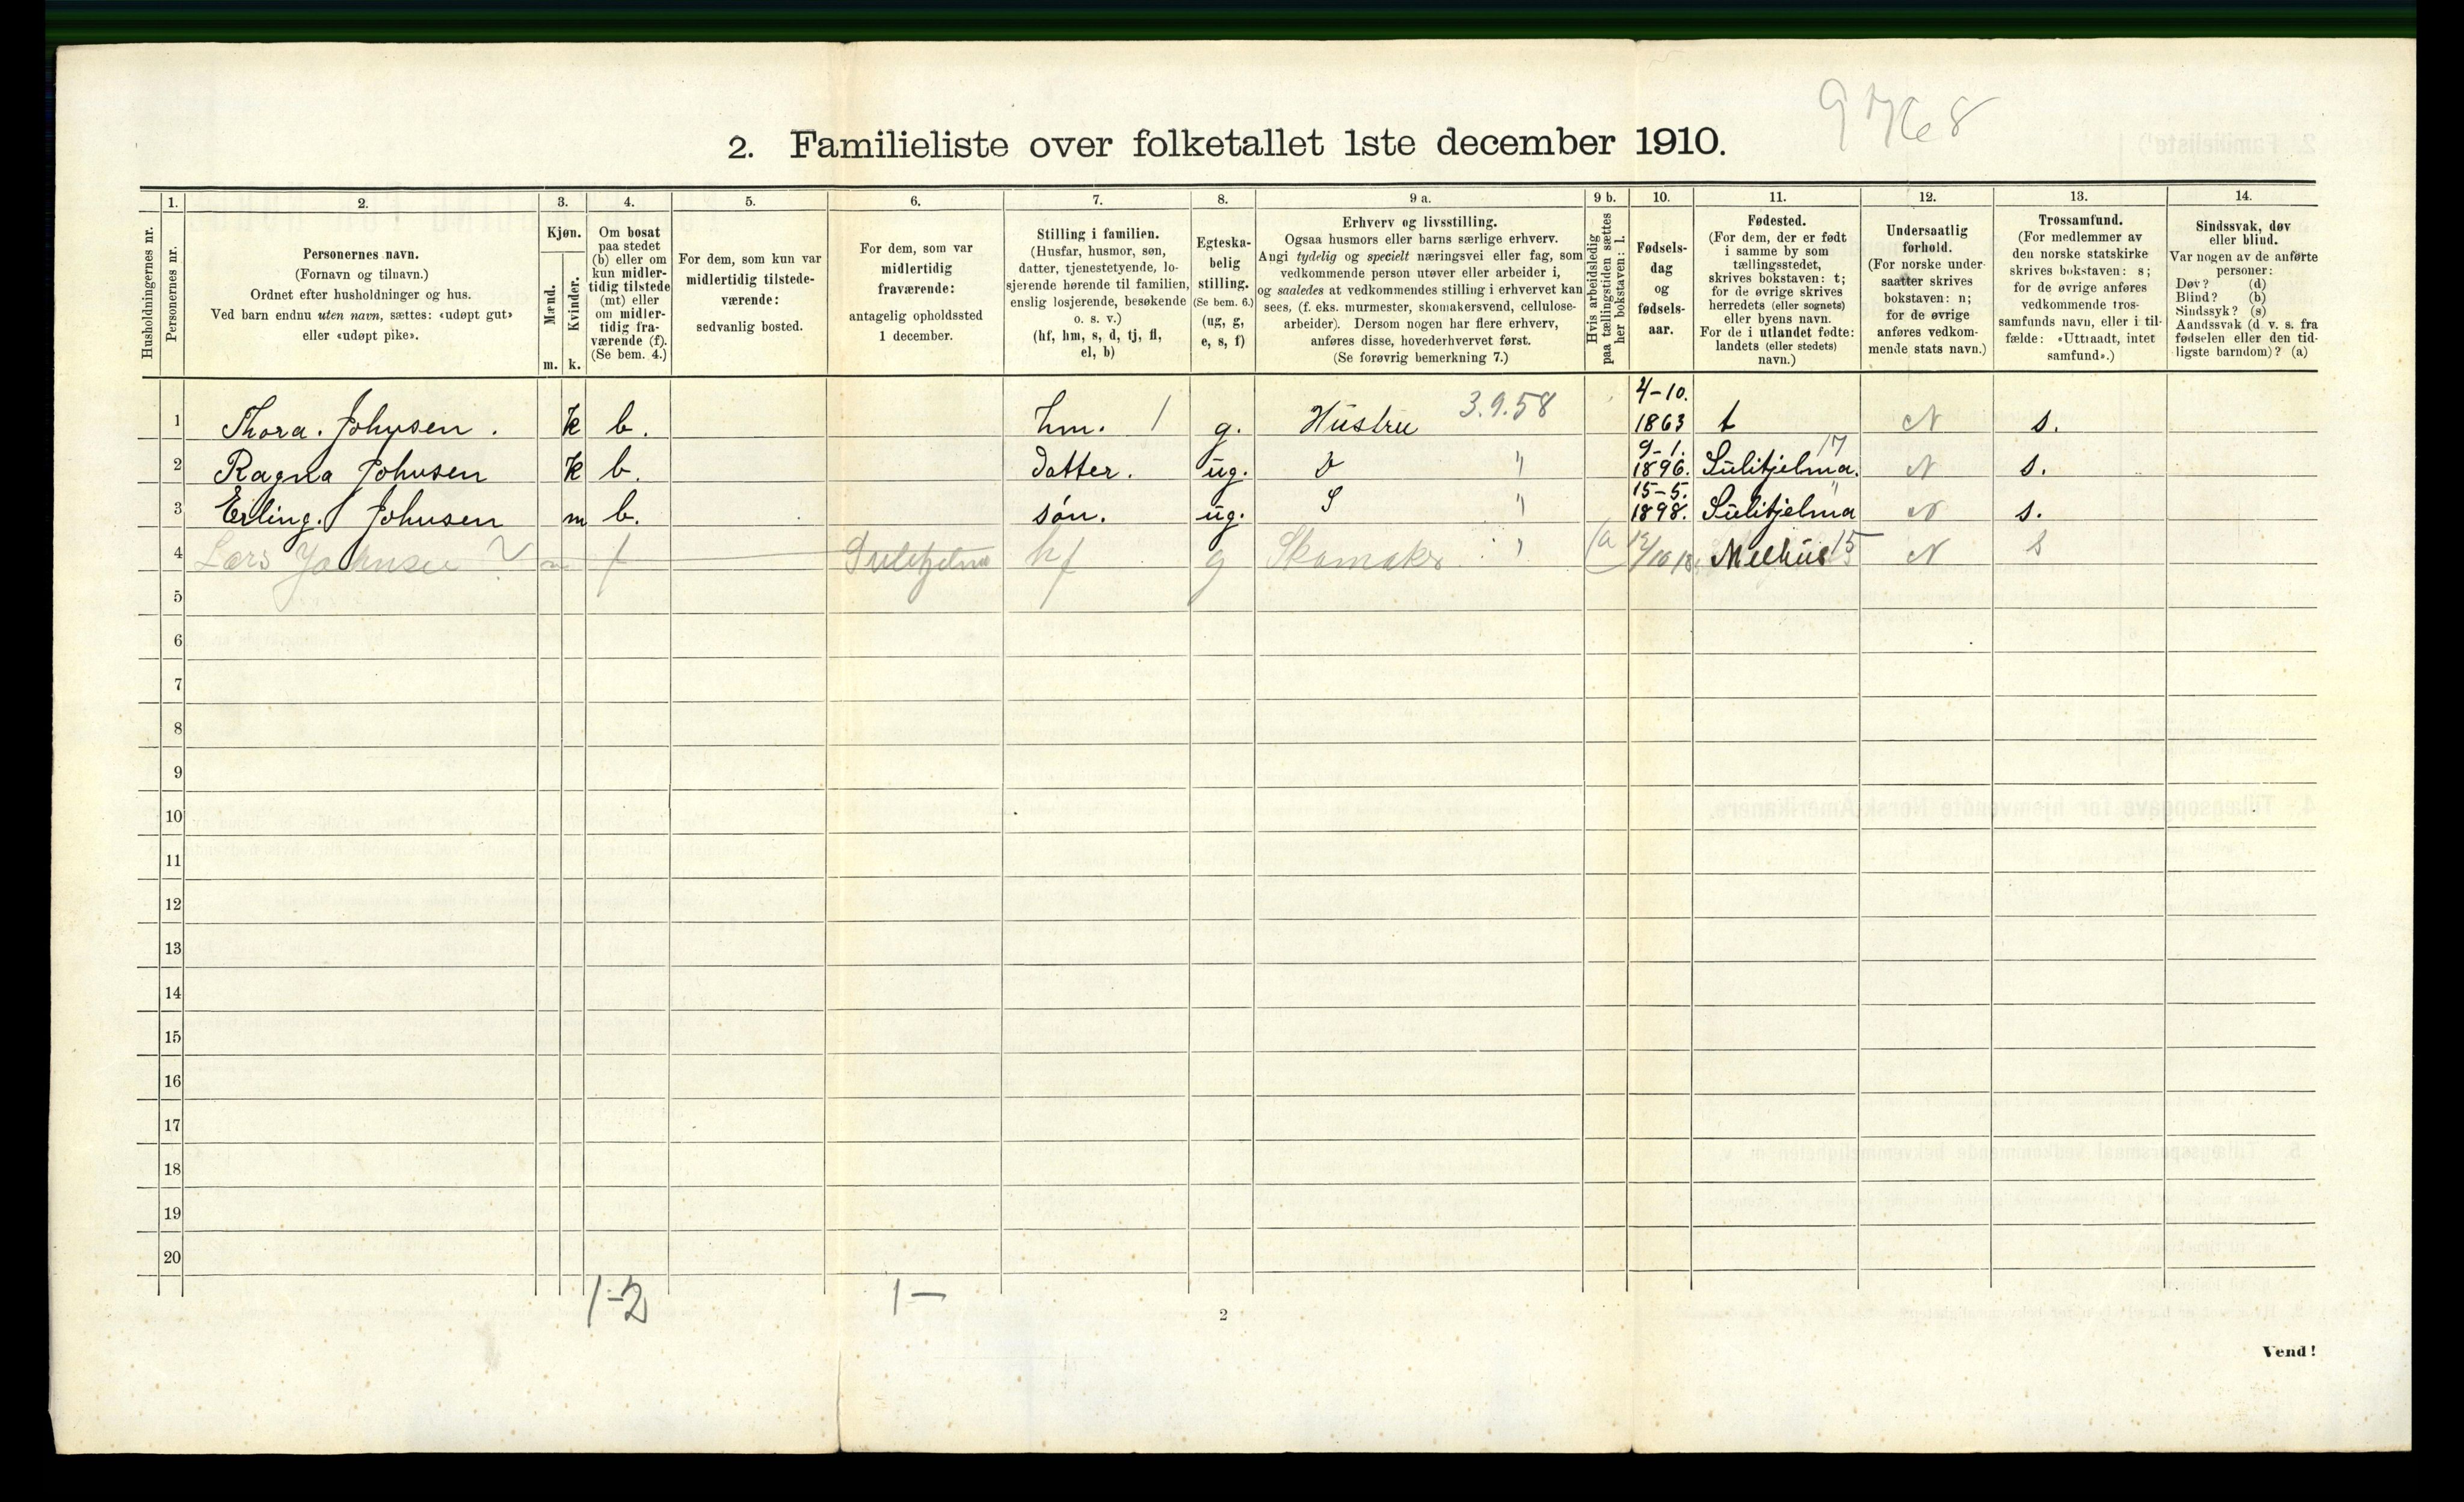 9768
2. Familieliste over folketallet 1ste december 1910.
1. 2. 3. 4. 5. 6. 7. 8. 9 a. 9 b. 10. 11. 12. 13. 14.
Husholdningernes nr.
Personernes nr.
Personernes navn.
(Fornavn og tilnavn.)
Ordnet efter husholdninger og hus.
Ved barn endnu uten navn, sættes: «udøpt gut»
eller «udøpt pike».
Kjøn.
Mænd.
Kvinder.
m. k.
Om bosat
paa stedet
(b) eller om
kun midler-
tidig tilstede
(mt) eller
om midler-
tidig fra-
værende (f).
(Se bem. 4.)
For dem, som kun var
midlertidig tilstede-
værende:
sedvanlig bosted.
For dem, som var
midlertidig
fraværende:
antagelig opholdssted
1 december.
Stilling i familien.
(Husfar, husmor, søn,
datter, tjenestetyende, lo-
sjerende hørende til familien,
enslig losjerende, besøkende
o. s. v.)
(hf, hm, s, d, tj, fl,
el, b)
Egteska-
belig
stilling.
(Se bem. 6.)
(ug, g,
e, s, f)
Erhverv og livsstilling.
Ogsaa husmors eller barns særlige erhverv.
Angi tydelig og specielt næringsvei eller fag, som
vedkommende person utøver eller arbeider i,
og saaledes at vedkommendes stilling i erhvervet kan
sees, (f. eks. murmester, skomakersvend, cellulose-
arbeider). Dersom nogen har flere erhverv,
anføres disse, hovederhvervet først.
(Se forøvrig bemerkning 7.)
Hvis arbeidsledig
paa tællingstiden sættes
her bokstaven: l.
Fødsels-
dag
og
fødsels-
aar.
Fødested.
(For dem, der er født
i samme by som
tællingsstedet,
skrives bokstaven: t;
for de øvrige skrives
herredets (eller sognets)
eller byens navn.
For de i utlandet fødte:
landets (eller stedets)
navn.)
Undersaatlig
forhold.
(For norske under-
saatter skrives
bokstaven: n;
for de øvrige
anføres vedkom-
mende stats navn.)
Trossamfund.
(For medlemmer av
den norske statskirke
skrives bokstaven: s;
for de øvrige anføres
vedkommende tros-
samfunds navn, eller i til-
fælde: «Uttraadt, intet
samfund».)
Sindssvak, døv
eller blind.
Var nogen av de anførte
personer:
Døv? (d)
Blind? (b)
Sindssyk? (s)
Aandssvak (d. v. s. fra
fødselen eller den tid-
ligste barndom)? (a)
1 Thora. Johnsen. k b. hm. 1 g. Hustru 3.9.58 4-10. 1863 t N s.
2 Ragna Johnsen k b. datter. ug. D " 9-1. 1896. Sulitjelma. 17 N s.
3 Erling. Johnsen m b. søn. ug. S " 15-5. 1898. Sulitjelma " N s.
4 Lars Johnsen m f Sulitjelma hf g Skomaker " 12/10 Melhus 15 N s
5
6
7
8
9
10
11
12
13
14
15
16
17
18
19
20
1-2 1-
2
Vend!